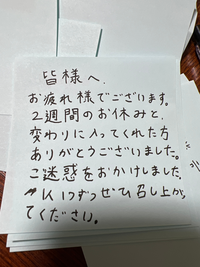 皆様へ
お疲れ様でございます。
2週間のお休みと、
変わりに入ってくれた方
ありがとうございました。
ご迷惑をおかけしました。
1人1つずつぜひ召し上がっ
てください。